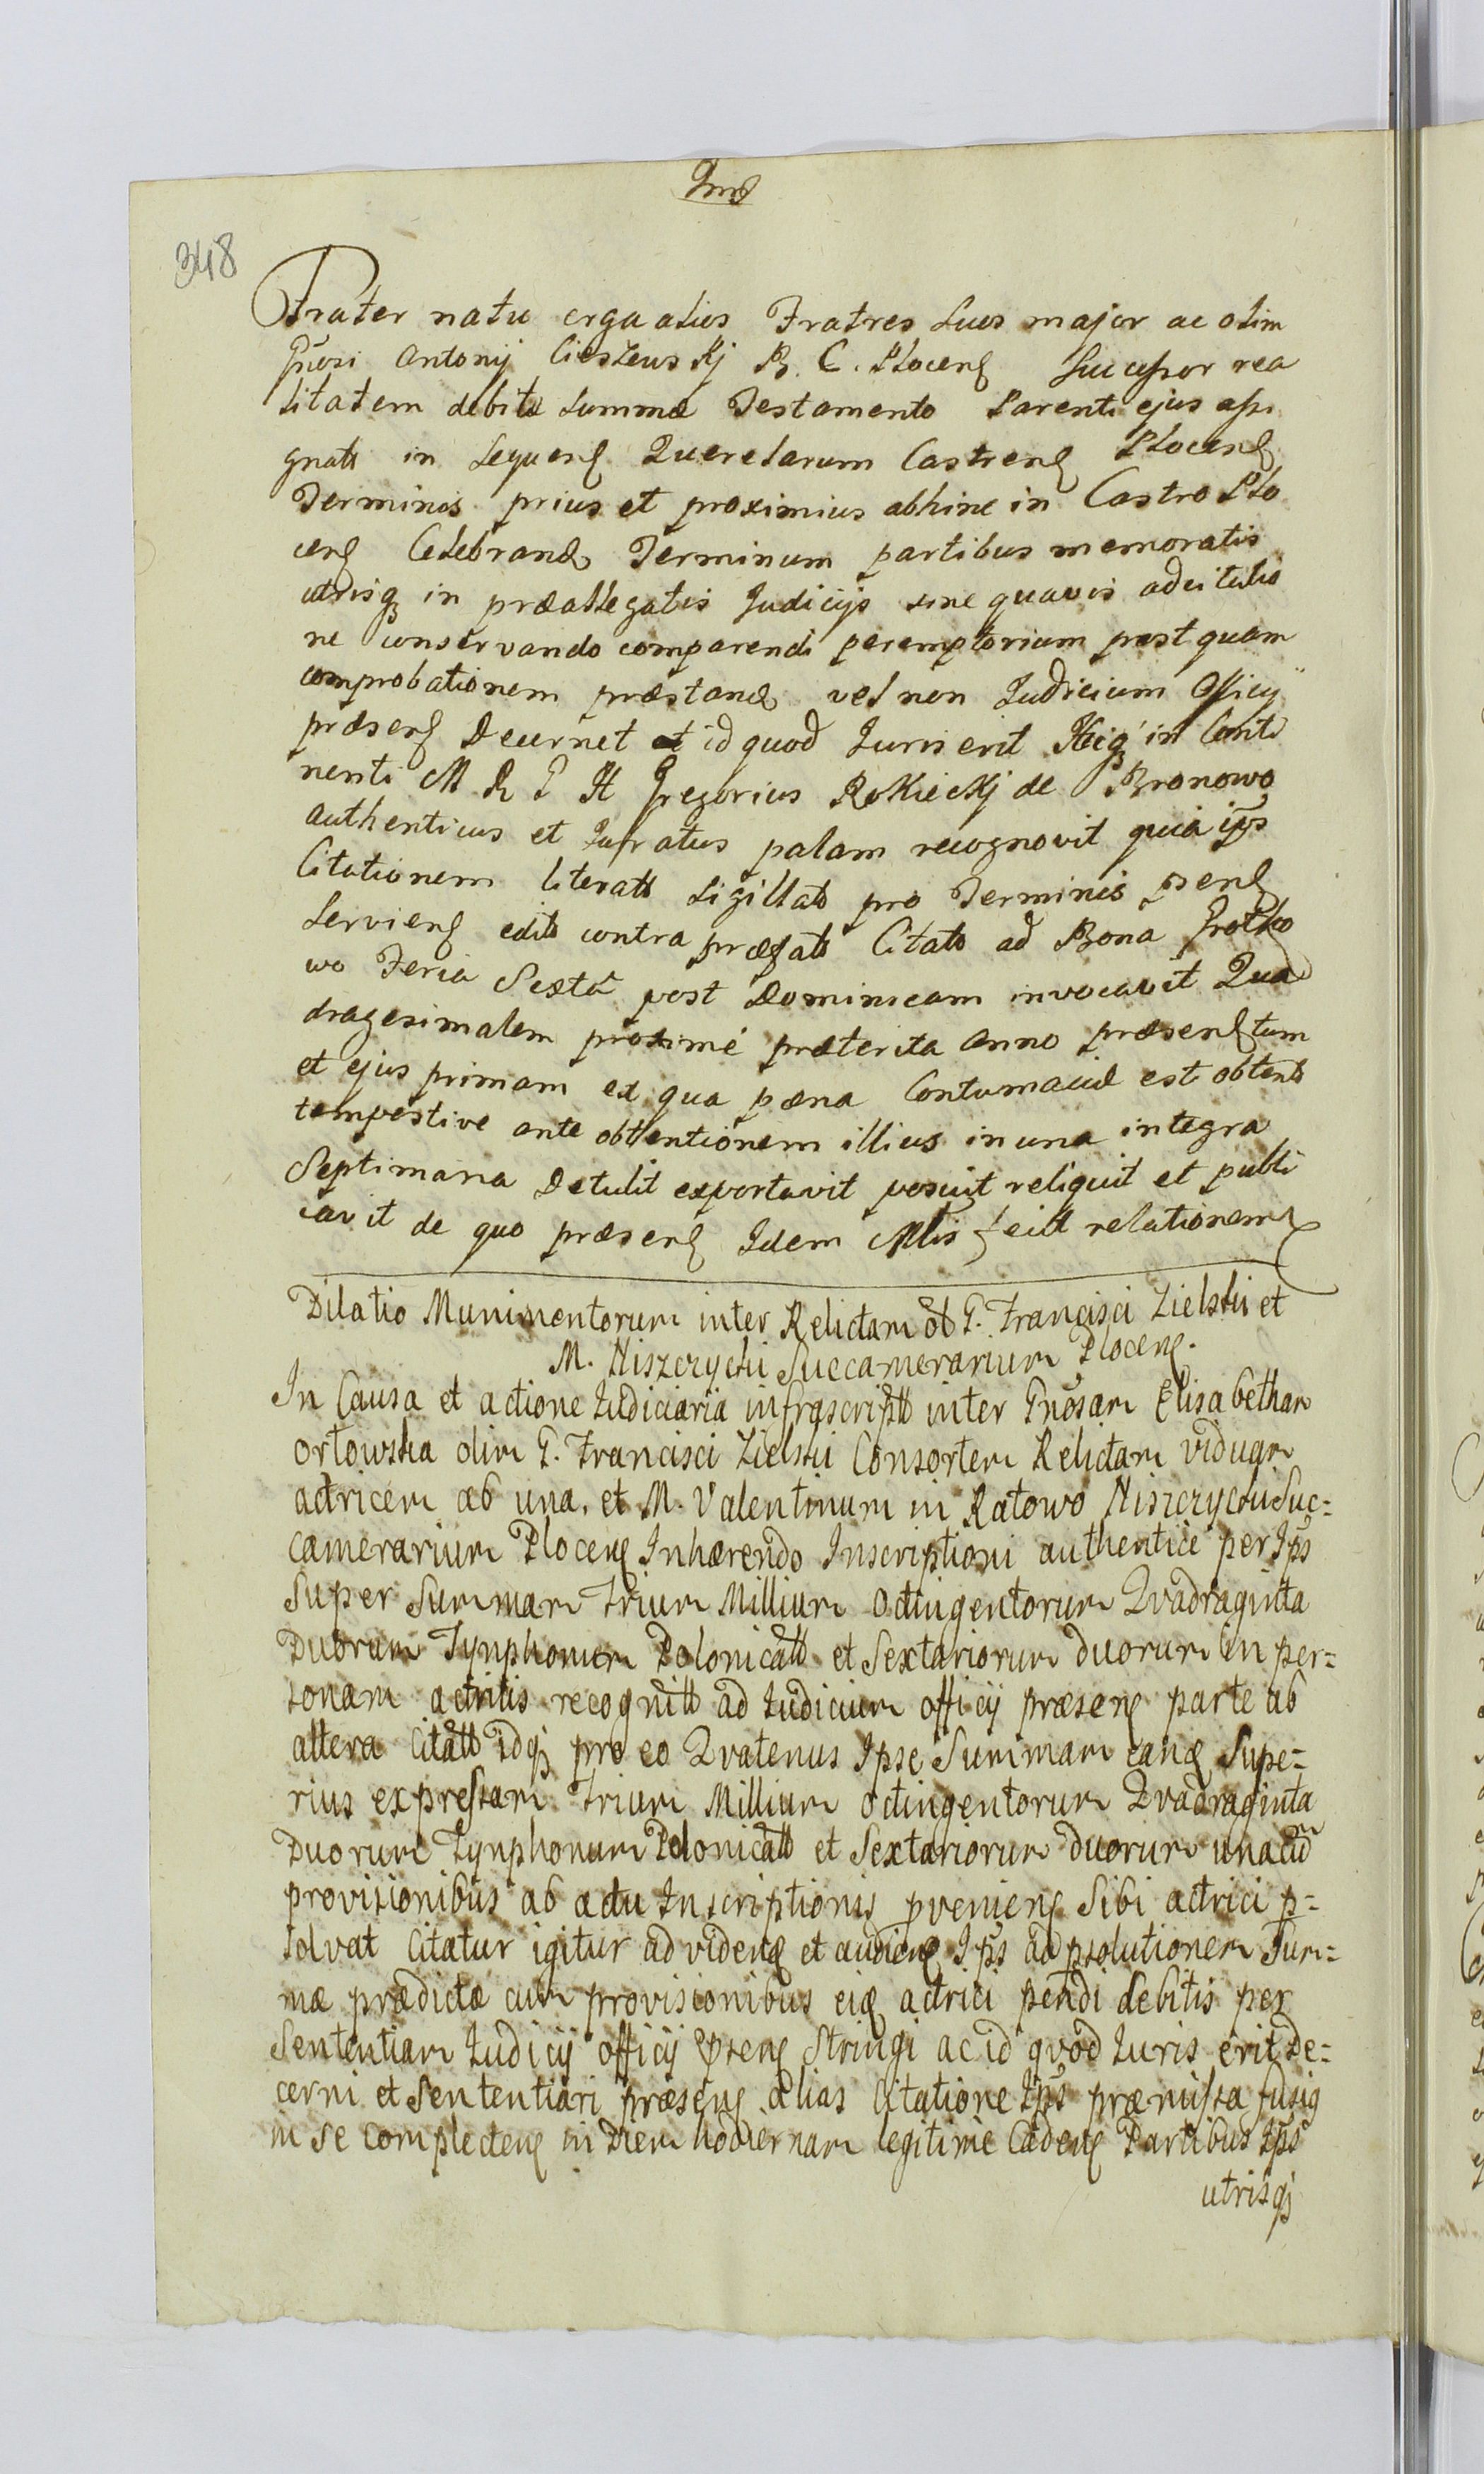 348
Frater natu erga alios Fratres suos major ac olim
Gnosi Antonij Cieszewskj B. C. Plocens Successor rea
litatem debitæ summæ Testamento Parenti ejus assi
gnats in sequens Querelarum Castrens Plocens
Terminos prius et proximius abhinc in Castro Plo
cens Celebrand Terminum partibus memoratis
utrisq in præallegatis Judicijs sine quavis adcitatio
ne conservando comparendi peremptorium post quam
comprobationem præstand vel non Judicium Officij
præsens Decernet et id quod Juris erit Itaq in Conti
nenti M R T H Gregorius Rokickj de Bronowo
authenticus et Juratus palam recognovit quia ips
Citationem literats sigillats pro Terminis psens
serviens edits contra præfats Citats ad Bona Grotko
wo Feria Sexta post Dominicam invocavit Qua
dragesimalem proximé præterita Anno præsens tum
et ejus primam ex qua pæna Contumaciæ est obtents
tempestive ante obtentionem illius in una integra
Septimana Detulit exportavit posuit reliquit et publi
cavit de quo præsens Idem Mlis fecit relationem
Dilatio Munimentorum inter Relictam ol G. Francisci Zielski et
M. Niszczycki Succamerarium Plocens.
In Causa et actione Judiciaria infrascriptt inter Gnosam Elisabetham
Orłowska olim G. Francisci Zielski Consortem Relictam viduam
actricem ab una, et M. Valentinum in Ratowo Niszczycki Suc=
camerarium Plocens Inhærendo Inscriptioni authentice per Ips
super Summam Trium Millium Octingentorum Qvadraginta
Duorum Tynphonum Polonicatt et Sextariorum duorum in per=
sonam actricis recognitt ad Judicium officij præsens parte ab
altera Citatt idq pro eo Qvatenus Ipse Summam eand Supe=
rius expressam Trium Millium Octingentorum Qvadraginta
Duorum Tynphonum Polonicatt et Sextariorum duorum unacum
provisionibus ab actu Inscriptionis pveniens Sibi actrici p=
solvat Citatur igitur ad vidend et audiend Ips ad psolutionem Sum=
mæ prædictæ cum provisionibus eid actrici pendi debitis per
Sententiam Judicij officij psens Stringi ac id qvod Juris erit De=
cerni et Sententiari præsens alias Citatione Ips præmissa fusig
in Se Complectens in Diem hodiernam legitime Cadens Partibus Ips
utrisq